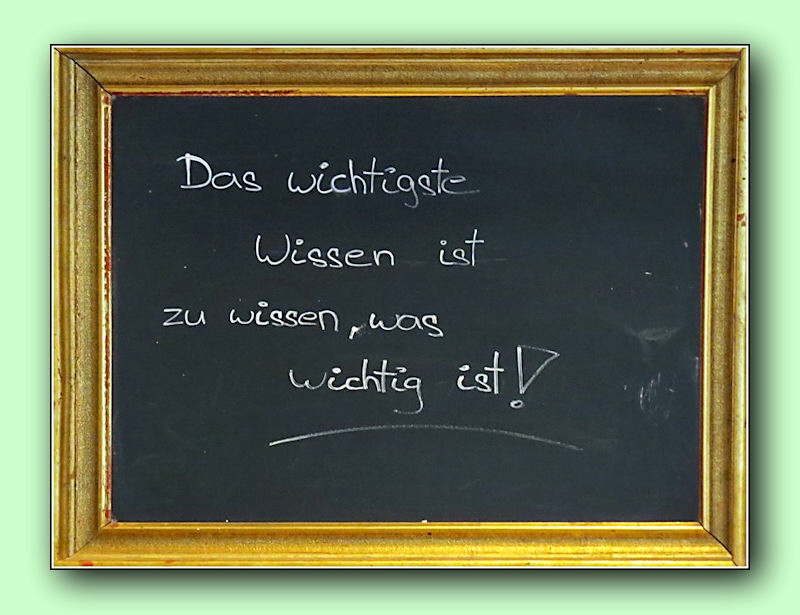 Das wichtigste
Wissen ist
zu wissen, was
wichtig ist!